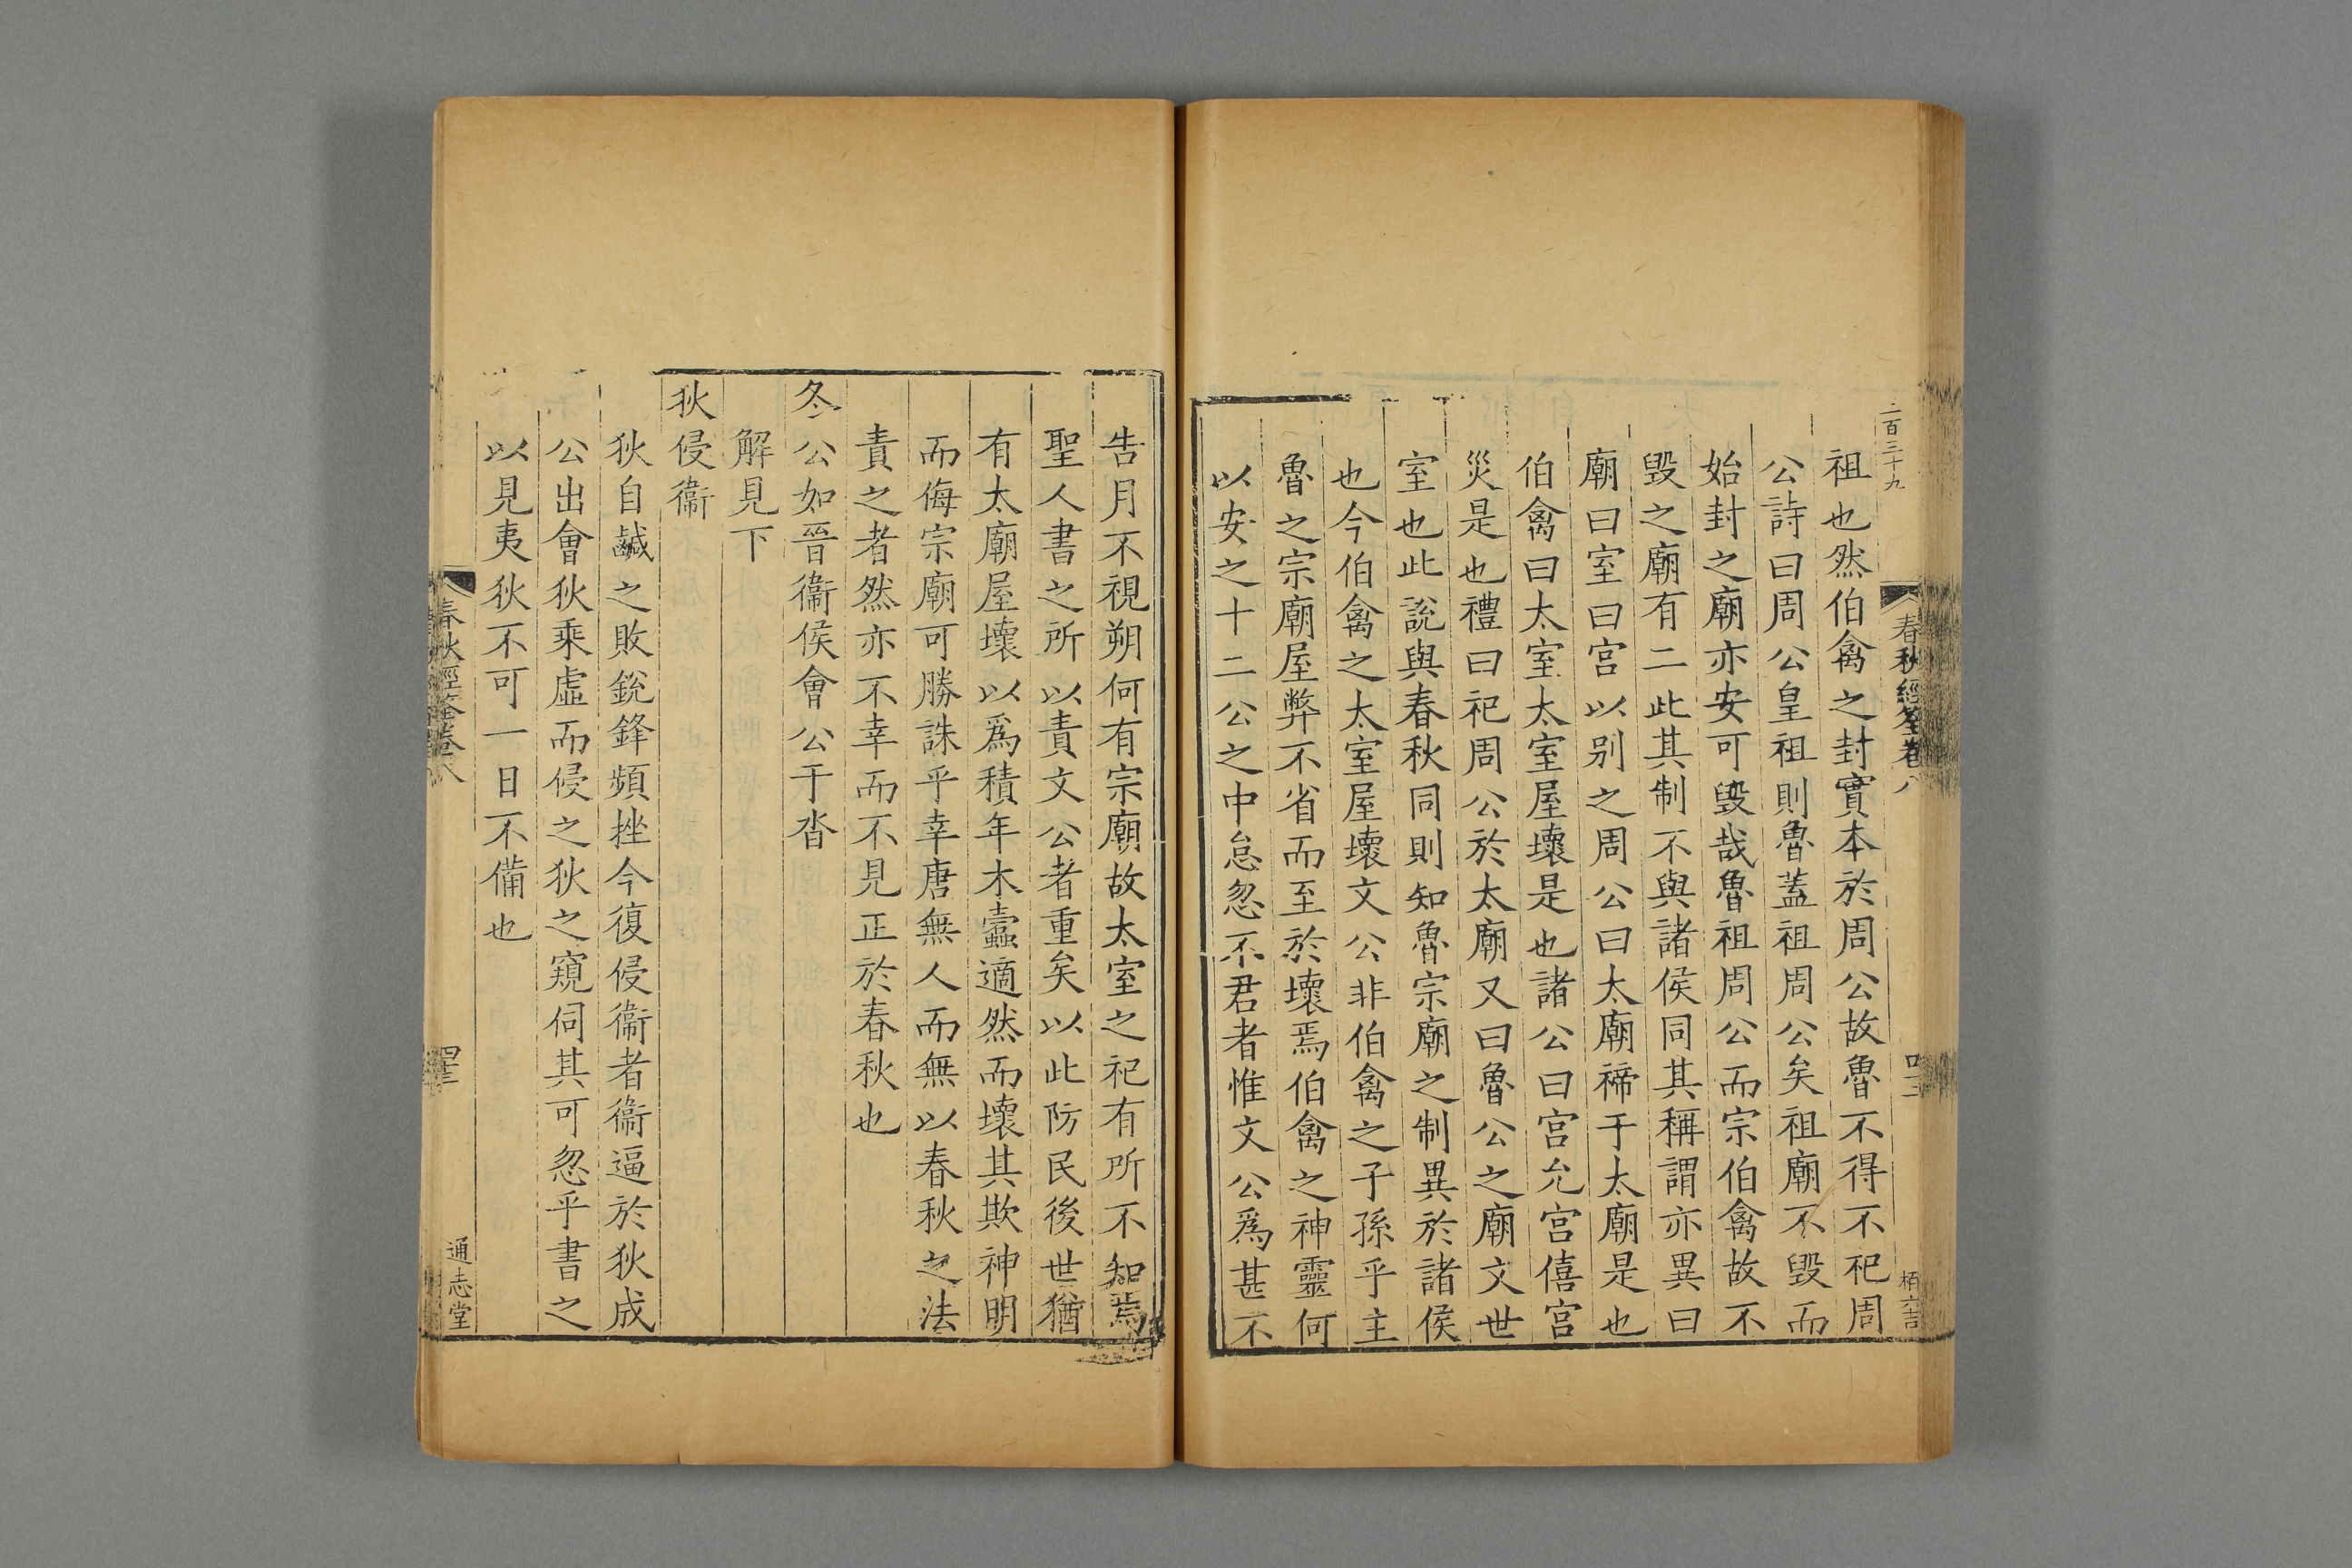 二百三十九
春秋經筌卷八
栢六吉
祖也然伯禽之封實本於周公故魯不得不祀周
公詩曰周公皇祖則魯蓋祖周公矣祖廟不毀而
始封之廟亦安可毀哉魯祖周公而宗伯禽故不
毀之廟有二此其制不與諸侯同其稱謂亦異曰
廟曰室曰宫以别之周公曰太廟禘于太廟是也
伯禽曰太室太室屋壞是也諸公曰宫允宫僖宫
災是也禮曰祀周公於太廟又曰魯公之廟文世
室也此說與春秋同則知魯宗廟之制異於諸侯
也今伯禽之太室屋壞文公非伯禽之子孫乎主
魯之宗廟屋弊不省而至於壞焉伯禽之神靈何
以安之十二公之中怠忽不君者惟文公爲甚不
告月不視朔何有宗廟故太室之祀有所不知焉
聖人書之所以責文公者重矣以此防民後世猶
有太廟屋壞以爲積年木蠹適然而壞其欺神明
而侮宗廟可勝誅乎幸唐無人而無以春秋之法
責之者然亦不幸而不見正於春秋也
冬公如晉衞侯會公于沓
解見下
狄侵衞
狄自鹹之敗銳鋒頻挫今復侵衞者衞逼於狄成
公出會狄乘虛而侵之狄之窺伺其可忽乎書之
以見夷狄不可一日不備也
春秋經筌卷八
通志堂